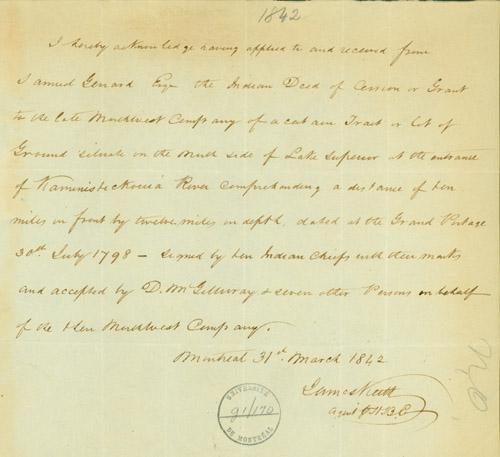 1842
I hereby acknowledge having applied to and received from
Samuel Gerrard Esqr the Indian Deed of Cession or Grant
to the late Northwest Company of a certain Tract or lot of
Ground situate on the North side of Lake Superior at the entrance
of Kaministickouia River comprehending a distance of ten
miles in front by twelve miles in depth, dated at the Grand Portage
30th July 1798 – signed by ten Indian Chiefs with their marks
and accepted by D. McGillivray & seven other Persons on behalf
of the then Northwest Company.
Montreal 31st March 1842
James Keith
Agent H.H.B.C
UNIVERSITÉ
g1/170
DE MONTRÉAL